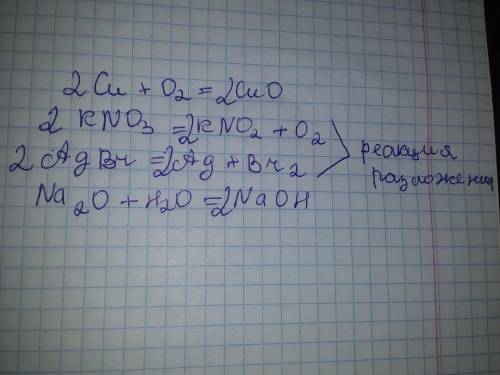 2Cu + O₂ = 2CuO
2KNO₃ = 2KNO₂ + O₂
2AgBr = 2Ag + Br₂
Na₂O + H₂O = 2NaOH
реакция
разложения